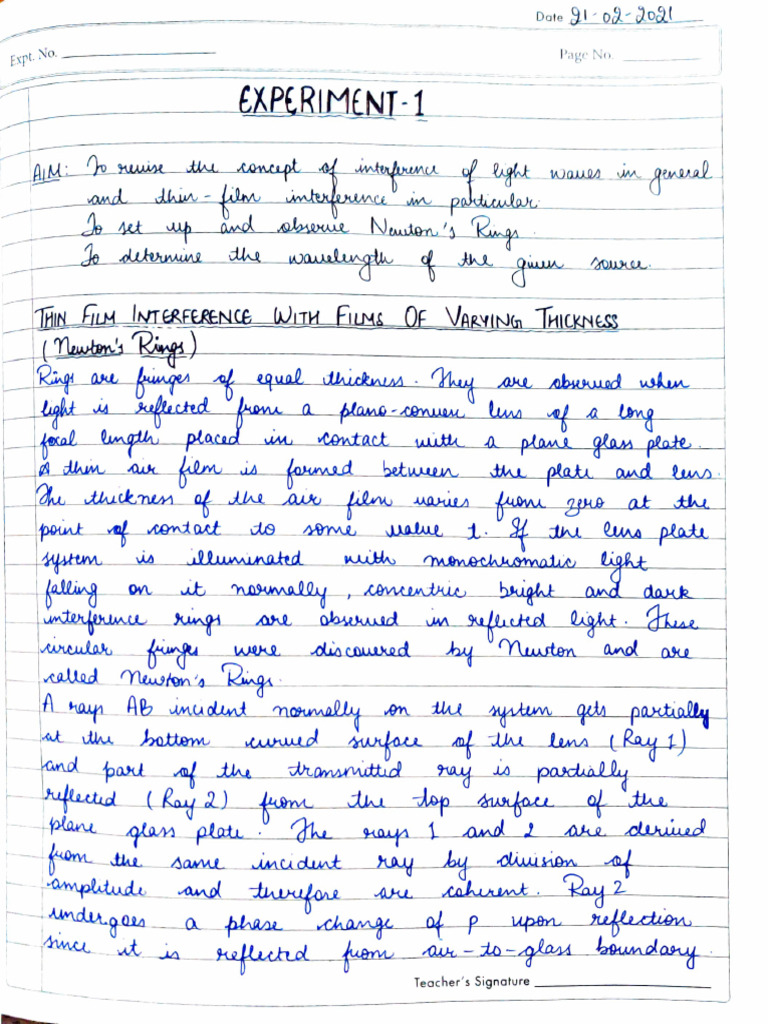 Date 21-02-2021
Expt. No.
Page No.
EXPERIMENT-1
AIM: To revise the concept of interference of light waves in general
and thin-film interference in particular.
To set up and observe Newton's Rings.
To determine the wavelength of the given source.
THIN FILM INTERFERENCE WITH FILMS OF VARYING THICKNESS
(Newton's Rings)
Rings are fringes of equal thickness. They are observed when
light is reflected from a plano-convex lens of a long
focal length placed in contact with a plane glass plate.
A thin air film is formed between the plate and lens.
The thickness of the air film varies from zero at the
point of contact to some value t. If the lens plate
system is illuminated with monochromatic light
falling on it normally, concentric bright and dark
interference rings are observed in reflected light. These
circular fringes were discovered by Newton and are
called Newton's Rings.
A rays AB incident normally on the system gets partially
at the bottom curved surface of the lens (Ray 1)
and part of the transmitted ray is partially
reflected (Ray 2) from the top surface of the
plane glass plate. The rays 1 and 2 are derived
from the same incident ray by division of
amplitude and therefore are coherent. Ray 2
undergoes a phase change of p upon reflection
since it is reflected from air-to-glass boundary.
Teacher's Signature